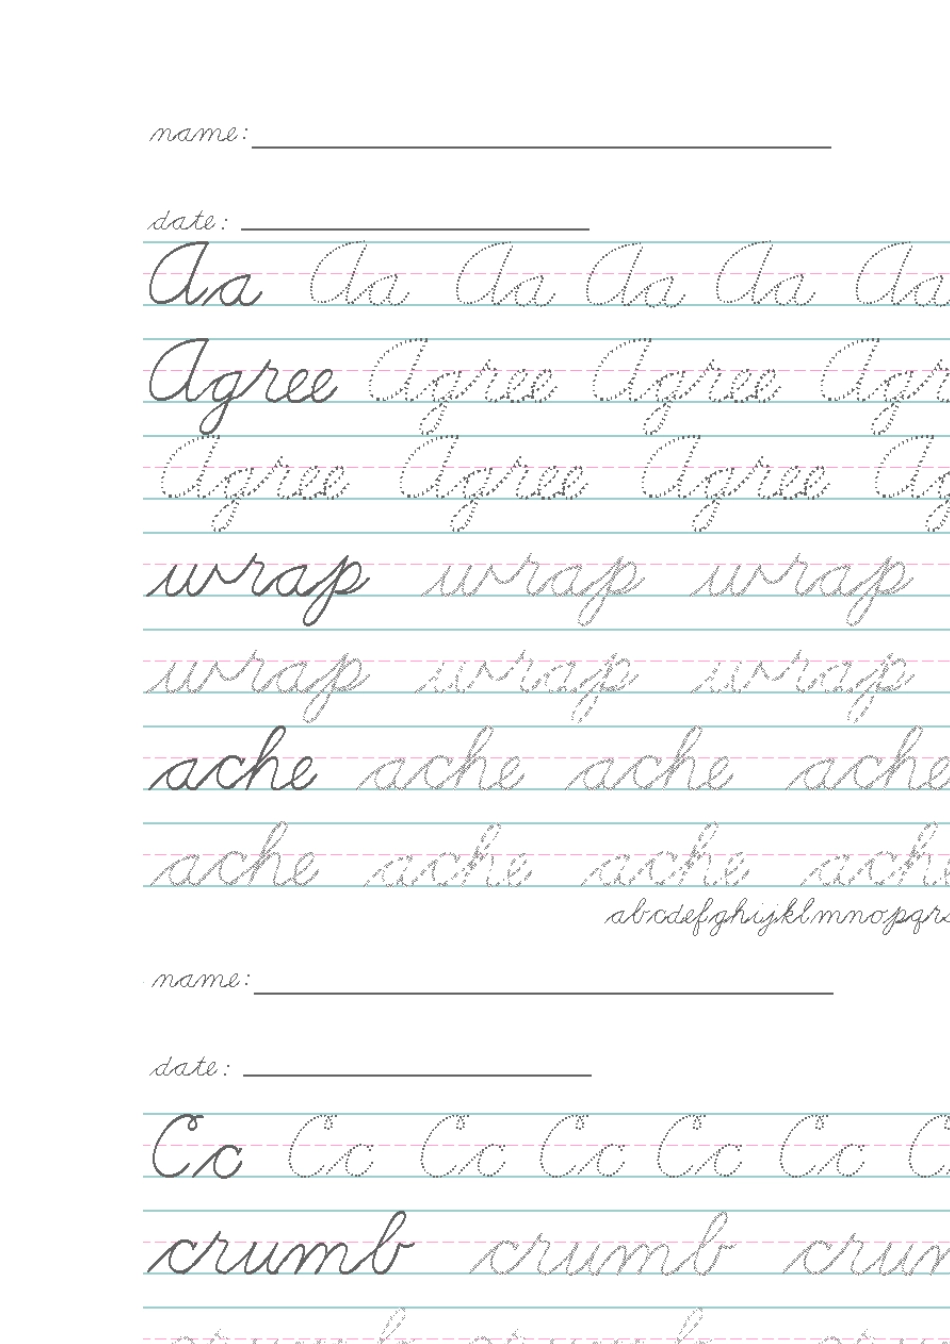 name:
date:
Aa Aa Aa Aa Aa Aa
Agree Agree Agree Agr
Agree Agree Agree Ag
wrap wrap wrap
wrap wrap wrap
ache ache ache ache
ache ache ache ache
abcdefghijklmnopqrs
name:
date:
Cc Cc Cc Cc Cc Cc C
crumb crumb crum
crumb crumb crum